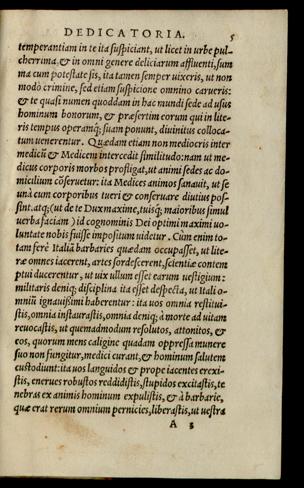 DEDICATORIA. 5
temperantiam in te ita suspiciant, ut licet in urbe pul-
cherrima, & in omni genere deliciarum affluenti, sum
ma cum potestate sis, ita tamen semper uixeris, ut non
modò crimine, sed etiam suspicione omnino carueris:
& te quasi numen quoddam in hac mundi sede ad usus
hominum bonorum, & præsertim eorum qui in lite-
ris tempus operamq; suam ponunt, diuinitus colloca-
tum uenerentur. Quædam etiam non mediocris inter
medicū & Medicem intercedit similitudo: nam ut me-
dicus corporis morbos profligat, ut animi sedes ac do-
micilium cōseruetur: ita Medices animos sanauit, ut se
unà cum corporibus tueri & conseruare diutius pos-
sint. atq; (ut de te Dux maxime, tuisq; maioribus simul
uerba faciam) id cognominis Dei optimi maximi uo-
luntate nobis fuisse impositum uidetur. Cùm enim to-
tam ferè Italiā barbaries quædam occupasset, ut lite-
ræ omnes iacerent, artes sordescerent, scientiæ contem
ptui ducerentur, ut uix ullum esset earum uestigium:
militaris deniq; disciplina ita esset despecta, ut Itali o-
mniū ignauissimi haberentur: ita uos omnia restitui-
stis, omnia instaurastis, omnia deniq; à morte ad uitam
reuocastis, ut quemadmodum resolutos, attonitos, &
eos, quorum mens caligine quadam oppressa munere
suo non fungitur, medici curant, & hominum salutem
custodiunt: ita uos languidos & prope iacentes erexi-
stis, enerues robustos reddidistis, stupidos excitastis, te
nebras ex animis hominum expulistis, & à barbarie,
quæ erat rerum omnium pernicies, liberastis, ut uestra
A 3